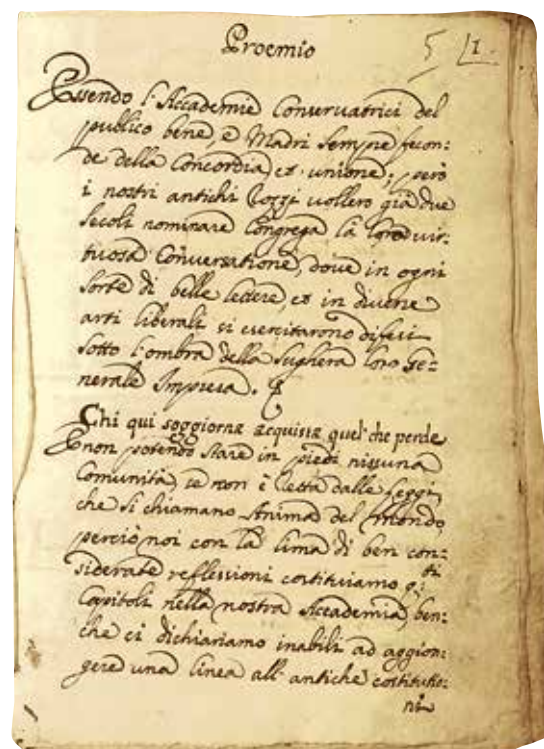 Proemio
5 1.
Essendo l'Accademie Conservatrici del
publico bene, e Madri sempre fecon:
de della Concordia, et unione; però
i nostri antichi Rozzi vollero già due
secoli nominare Congrega la loro vir:
tuosa Conversatione, dove in ogni
sorte di belle lettere, et in diverse
arti liberali si esercitarono difesi
sotto l'ombra della sughera loro Ge:
nerale Impresa.
Chi qui soggiorna acquista quel che perde
E non potendo stare in piedi nissuna
Comunità, se non è retta dalle Leggi,
che si chiamano Anima del Mondo,
perciò noi con la lima di ben con:
siderate reflessioni costituiamo q.ti
Capitoli nella nostra Accademia, ben:
che ci dichiariamo inabili ad aggion:
gere una linea all'antiche costitutio:
ni